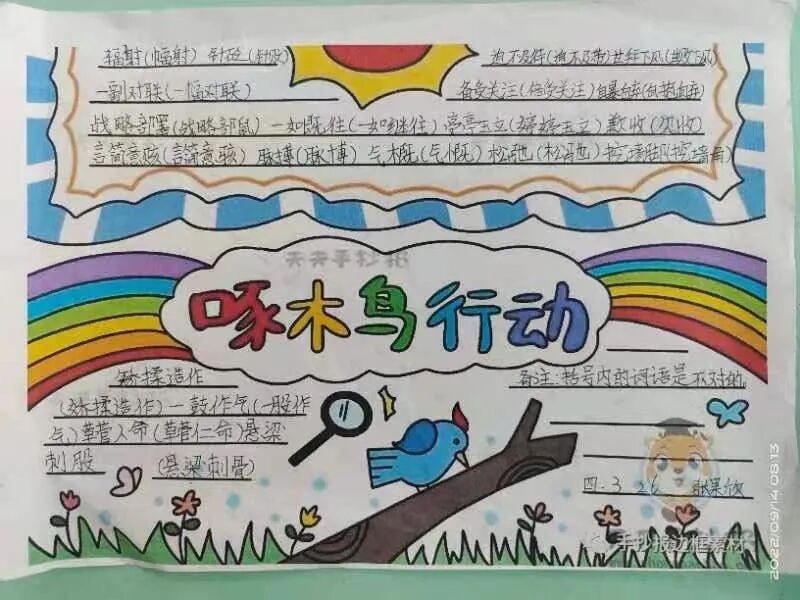 辐射(幅射) 针砭(针贬)
迫不及待(迫不及带)甘拜下风(
一副对联(一幅对联)
备受关注(倍受关注)自暴自弃(自抱自弃)
战略部署(战略部鼠)一如既往(一如继往)亭亭玉立(婷婷玉立)歉收(欠收)
言简意赅(言简意骇)脉搏(脉博)气概(气慨)松弛(松驰)挖墙脚(挖墙角)
天天手抄报
啄木鸟行动
矫揉造作
(娇揉造作)一鼓作气(一股作
气)草菅人命(草管人命)悬梁
刺股 (悬梁刺骨)
备注:括号内的词语是不对的
四.3 26
手抄报边框素材
2022/09/14 08:13